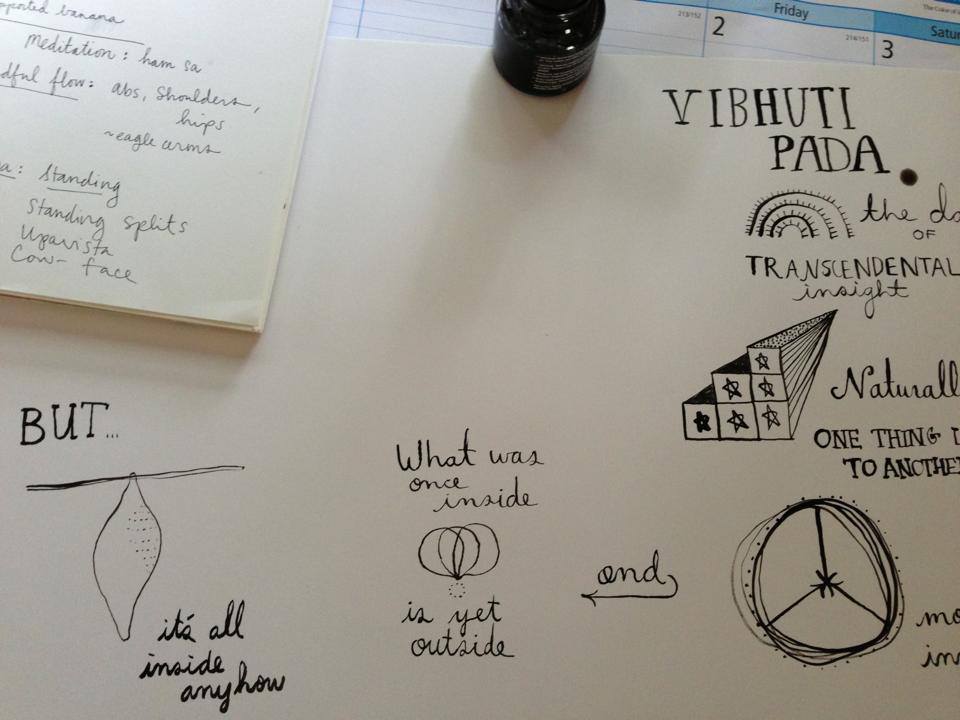 banana
Meditation: ham sa
flow: abs, Shoulders,
hips
~eagle arms
Standing
Standing splits
Upavista
Cow-face
Friday
213/152
2
214/151
3
VIBHUTI
PADA.
the
OF
TRANSCENDENTAL
insight
ONE THING
TO
BUT...
it's all
inside
anyhow
What was
once
inside
is yet
outside
and